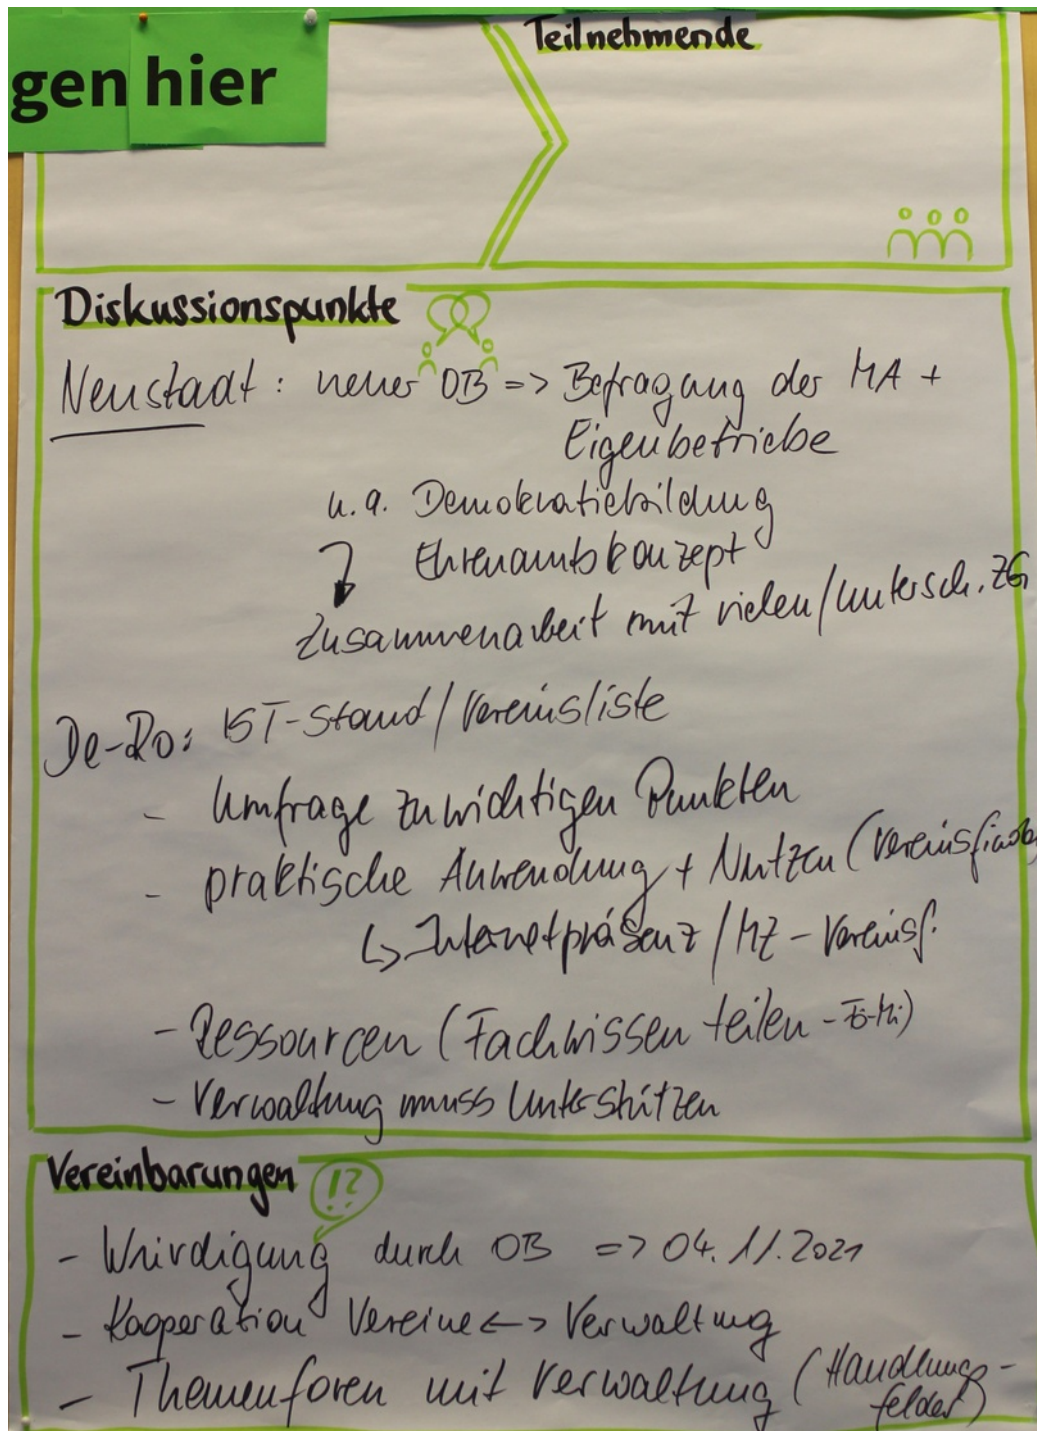 gen hier
Teilnehmende
Diskussionspunkte
Neustadt: neuer OB => Befragung der MA +
Eigenbetriebe
u.a. Demokratiebildung
Ehrenamtskonzept
Zusammenarbeit mit vielen/untersch. ZG
De-Ro: IST-Stand/Vereinsliste
- Umfrage zu wichtigen Punkten
- praktische Anwendung + Nutzen (Vereins
↳ Internetpräsenz / MZ - Vereinsf.
- Ressourcen (Fachwissen teilen - Fö-Mi)
- Verwaltung muss unterstützen
Vereinbarungen !?
- Würdigung durch OB => 04.11.2021
- Kooperation Vereine <-> Verwaltung
- Themenforen mit Verwaltung (Handlungs-
felder)